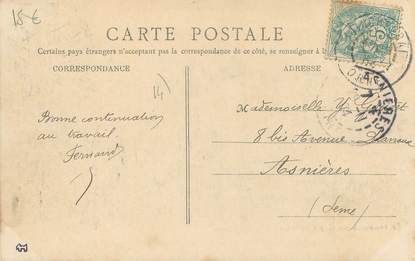 15 €
CARTE POSTALE
Certains pays étrangers n'acceptant pas la correspondance de ce côté, se renseigner à
CORRESPONDANCE
ADRESSE
14)
Bonne continuation
au travail.
Fernand
Mademoiselle Y.
8 bis Avenue
Asnières
(Seine)
ASNIERES